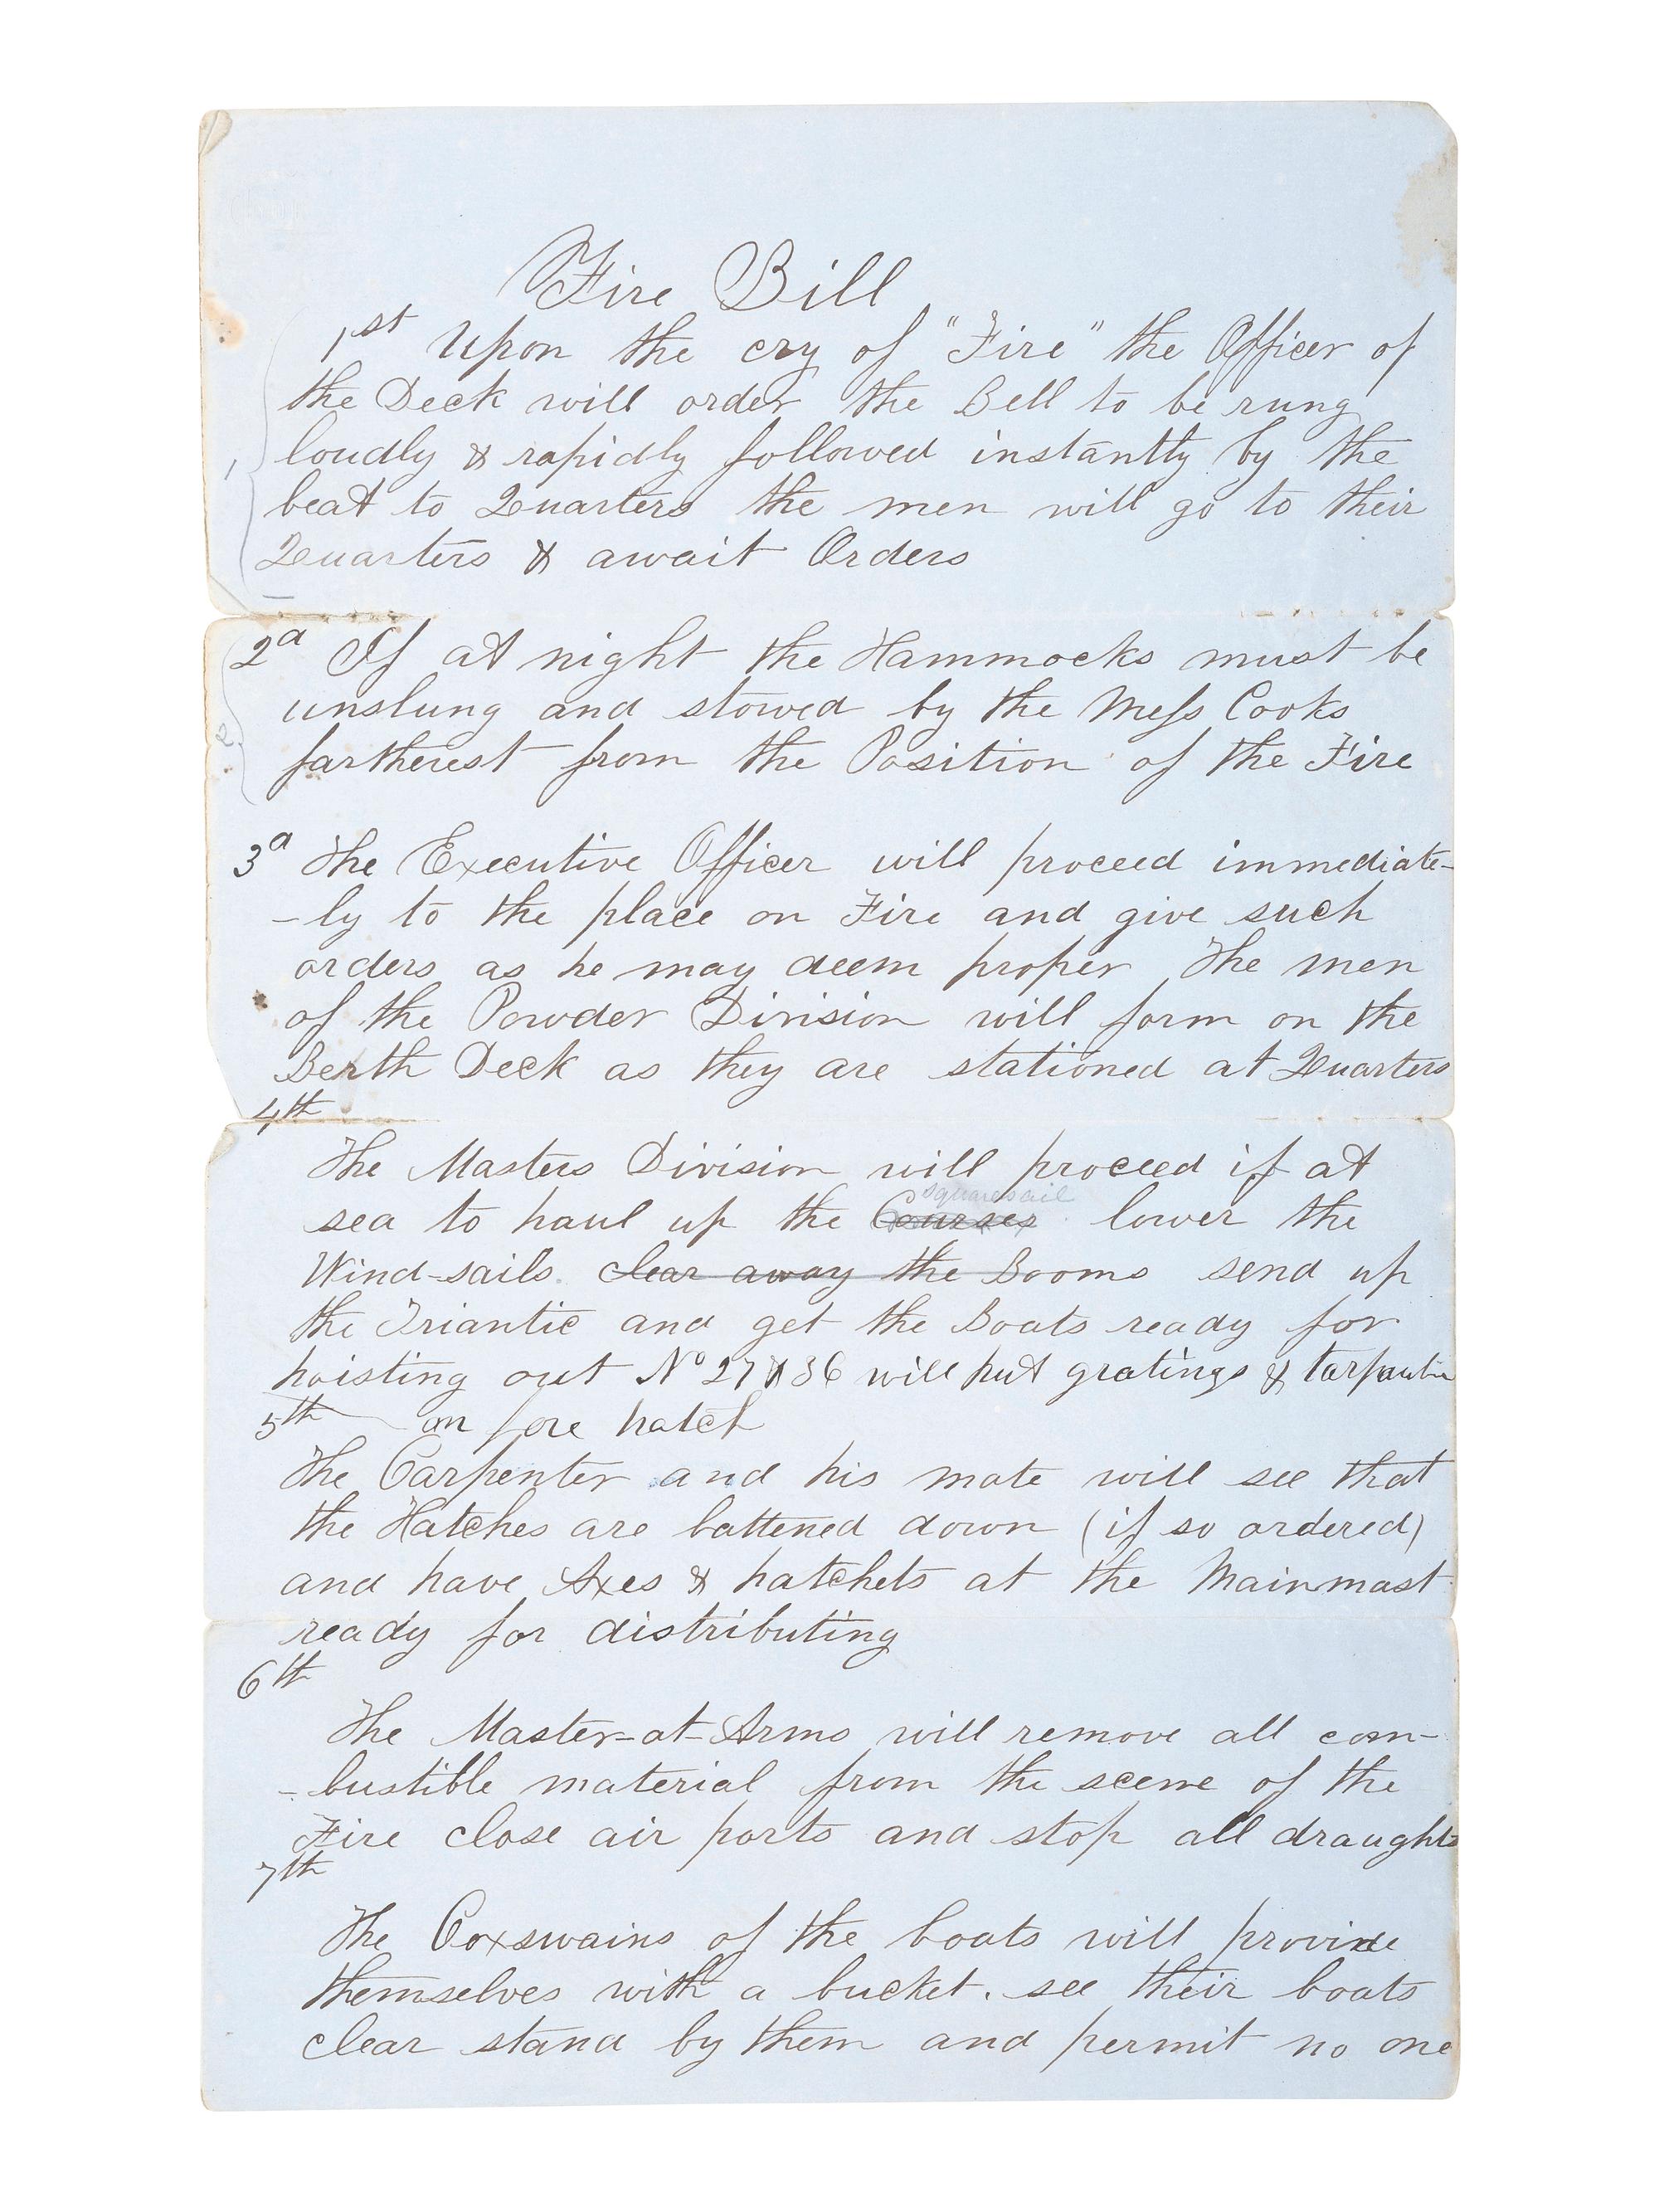 Fire Bill
1st Upon the cry of "Fire" the Officer of
the Deck will order the Bell to be rung
loudly & rapidly followed instantly by the
beat to Quarters the men will go to their
Quarters & await Orders
2d If at night the Hammocks must be
unslung and stowed by the Mess Cooks
fartherest from the Position of the Fire
3d The Executive Officer will proceed immediate-
-ly to the place on Fire and give such
orders as he may deem proper The men
of the Powder Division will form on the
Berth Deck as they are stationed at Quarters
4th
The Masters Division will proceed if at
squaresail
sea to haul up the Courses lower the
Wind-sails clear away the Booms send up
the Triantic and get the Boats ready for
hoisting out No 27 & 36 will put gratings & tarpaulin
5th on fore hatch
The Carpenter and his mate will see that
the Hatches are battened down (if so ordered)
and have Axes & hatchets at the Mainmast
ready for distributing
6th
The Master-at-Arms will remove all com-
-bustible material from the scene of the
Fire close air ports and stop all draughts
7th
The Coxswains of the boats will provide
themselves with a bucket. see their boats
clear stand by them and permit no one